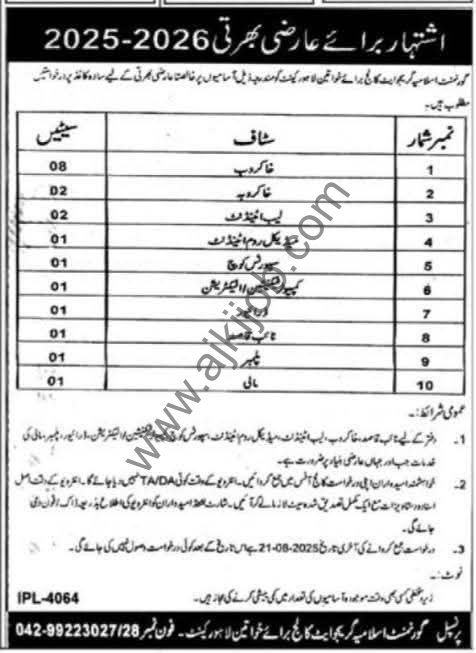 اشتہار برائے عارضی بھرتی 2025-2026
گورنمنٹ اسلامیہ گریجوایٹ کالج برائے خواتین لاہور کینٹ کو مندرجہ ذیل آسامیوں پر خالصتاً عارضی بھرتی کے لیے سادہ کاغذ پر درخواستیں
مطلوب ہیں۔
نمبر شمار سٹاف سیٹیں
1 خاکروب 08
2 خاکروبہ 02
3 لیب اٹینڈنٹ 02
4 میڈیکل روم اٹینڈنٹ 01
5 سپورٹس کوچ 01
6 کمپیوٹر ٹیکنیشن/الیکٹریشن 01
7 ڈرائیور 01
8 نائب قاصد 01
9 پلمبر 01
10 مالی 01
عمومی شرائط:۔
1۔ دفتر کے لیے نائب قاصد، خاکروب، لیب اٹینڈنٹ، میڈیکل روم اٹینڈنٹ، سپورٹس کوچ، کمپیوٹر ٹیکنیشن/الیکٹریشن، ڈرائیور، پلمبر، مالی کی
خدمات جب اور جہاں عارضی بنیاد پر ضرورت ہے۔
2۔ خواہشمند امیدواران اپنی درخواست کالج آفس میں جمع کروائیں۔ انٹرویو کے وقت کوئی TA/DA نہیں دیا جائے گا۔ انٹرویو کے وقت اصل
اسناد و دستاویزات مع ایک مکمل تصدیق شدہ سیٹ لازماً لے کر آئیں۔ شارٹ لسٹڈ امیدواران کو انٹرویو کی اطلاع بذریعہ ڈاک/فون دی
جائے گی۔
3۔ درخواست جمع کروانے کی آخری تاریخ 21-08-2025 ہے اس تاریخ کے بعد کوئی درخواست وصول نہیں کی جائے گی۔
نوٹ:۔
زیر دستخطی کسی بھی وقت موجودہ آسامیوں کی تعداد میں کمی بیشی کرنے کی مجاز ہیں۔
IPL-4064
پرنسپل گورنمنٹ اسلامیہ گریجوایٹ کالج برائے خواتین لاہور کینٹ۔ فون نمبر 042-99223027/28
www.ajkijob.com